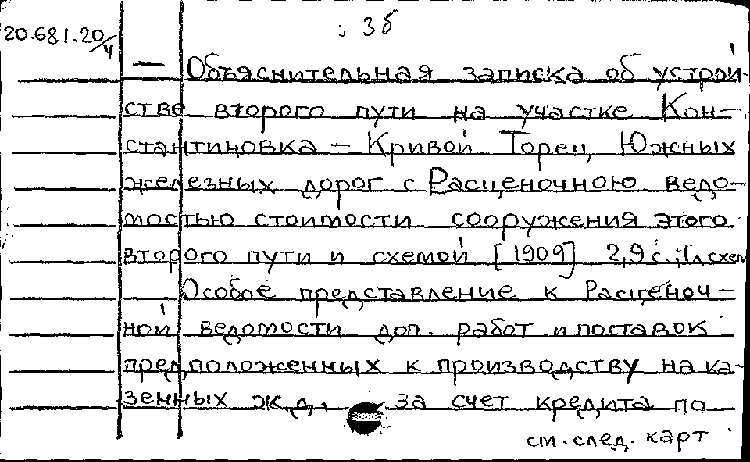 : 3б
20.681.20/4
— Объяснительная записка об устрой-
стве второго пути на участке Кон-
стантиновка – Кривой Торец, Южных
железных дорог с Расценочною ведо-
мостью стоимости сооружения этого
второго пути и схемой [1909] 2,9 с., 1л схем
Особое представление к Расценоч-
ной ведомости доп. работ и поставок
предположенных к производству на ка-
зенных ж.д. за счет кредита по
см. след. карт